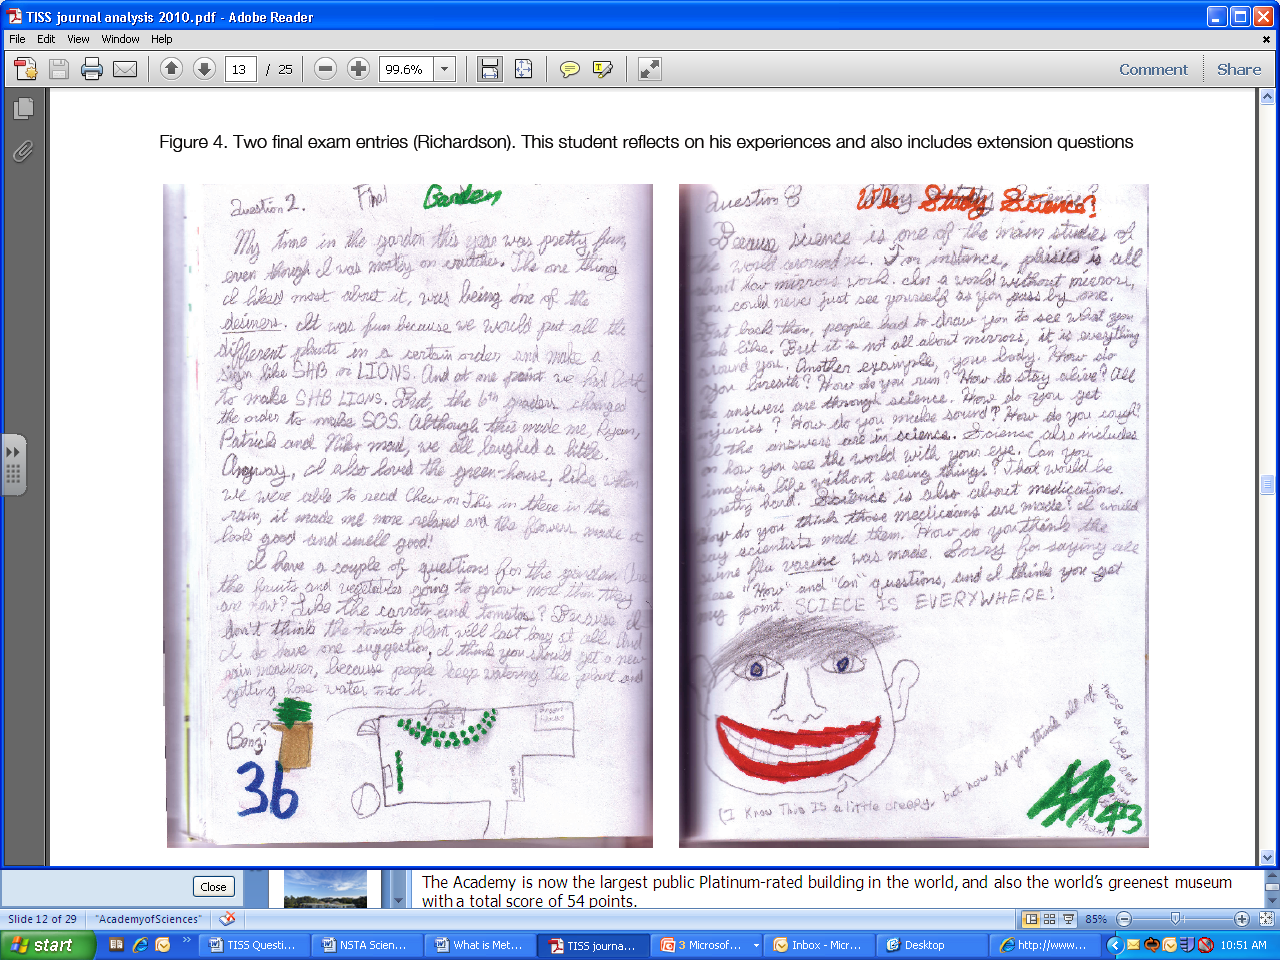 TISS journal analysis 2010.pdf - Adobe Reader
File Edit View Window Help
13 / 25 99.6% Comment Share
Figure 4. Two final exam entries (Richardson). This student reflects on his experiences and also includes extension questions
Question 2. Final Garden
My time in the garden this year was pretty fun,
even though I was mostly on crutches. The one thing
I liked most about it, was being one of the
desiners. It was fun because we would put all the
different plants in a certain order and make a
sign like SHB or LIONS. And at one point we had both
to make SHB LIONS. But, the 6th graders changed
the order to make SOS. Although this made me,
Patrick and Niko mad, we all laughed a little.
Anyway, I also loved the green-house, like when
we were able to read Chew on This in there in the
rain, it made me more relaxed and the flowers made it
look good and smell good!
I have a couple of questions for the garden. Are
the fruits and vegetables going to grow more then they
are now? Like the carrots and tomatos? Because I
don't think the tomato plant will last long at all. And
I do have one suggestion, I think you should get a new
rain measurer, because people keep watering the plant and
getting hose water into it.
Bonzi
36
Question 8 Why Study Science?
Because science is one of the main studies of
the world around us. For instance, phisics is all
about how mirrors work. In a world without mirrors,
you could never just see yourself as you pass by one.
But back then, people had to draw you to see what you
look like. But it is not all about mirrors, it is everything
around you. Another example, your body. How do
you breath? How do you run? How do stay alive? All
the answers are through science. How do you get
injuries? How do you make sound? How do you cough?
all the answers are in science. Science also includes
on how you see the world with your eye. Can you
imagine like without seeing things? That would be
pretty hard. Science is also about medications.
How do you think those medicians are made? I would
say scientists made them. How do you think the
swine flu vacine was made. Sorry for saying all
these "How" and "Can" questions, and I think you get
my point. SCIECE IS EVERYWHERE!
(I Know This IS a little creepy, but how do you think all of those are used and how
43
Close
The Academy is now the largest public Platinum-rated building in the world, and also the world's greenest museum
with a total score of 54 points.
Slide 12 of 29 "AcademyofSciences" 85%
start TISS Questi... NSTA Scien... What is Met... TISS journa... 3 Microsof... Inbox - Micr... Desktop http://www... 10:51 AM